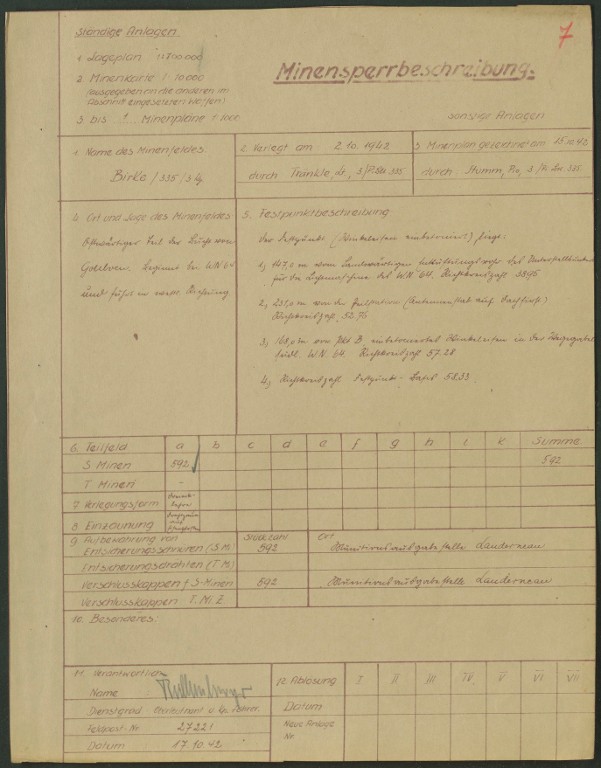 Ständige Anlagen.
7
1. Lageplan 1:100000
2. Minenkarte 1:10000
(ausgegeben an die anderen im
Abschnitt eingesetzten Waffen)
3. bis ? Minenpläne 1:1000
Minensperrbeschreibung.
sonstige Anlagen
1. Name des Minenfeldes:
Birke /335/3
2. Verlegt am 2.10.1942
durch Tränkle, Lt., 3/Pi.Btl. 335
3. Minenplan gezeichnet am 15.10.42
durch: Stumm, Pio, 3/Pi. Btl. 335
4. Ort und Lage des Minenfeldes:
Ostwärtiger Teil der Bucht von
Goulven. Beginnt bei WN 64
und führt in westl. Richtung
5. Festpunktbeschreibung
Der Festpunkt (Winkeleisen einbetoniert) liegt:
1, 147,0 m vom Landwärtigen
für die WN 64. Richtkreiszahl
2, 231,0 m von der (Antennenmast auf Dachfirst)
Richtkreiszahl 52.76
3, 168,0 m von Pkt B, einbetoniertes Winkeleisen in der
südl. W.N. 64. Richtkreiszahl 57.28
4, Richtkreiszahl Festpunkt - Basis 58.33
6. Teilfeld a b c d e f g h i k Summe
S. Minen 592 592
T. Minen -
7. Verlegungsform
8. Einzäunung
9. Aufbewahrung von Stückzahl Ort
Entsicherungsschnüren (S.Mi) 592 Munitionsausgabestelle Landerneau
Entsicherungsdrähten (T.Mi)
Verschlusskappen f. S-Minen 592 Munitionsausgabestelle Landerneau
Verschlusskappen T.Mi.Z.
10. Besonderes:
11. Verantwortlich
Name
Dienstgrad Oberleutnant u. Kp. Führer.
Feldpost-Nr. 27221
Datum 17.10.42
12. Ablösung I II III IV V VI VII
Datum
Neue Anlage
Nr.